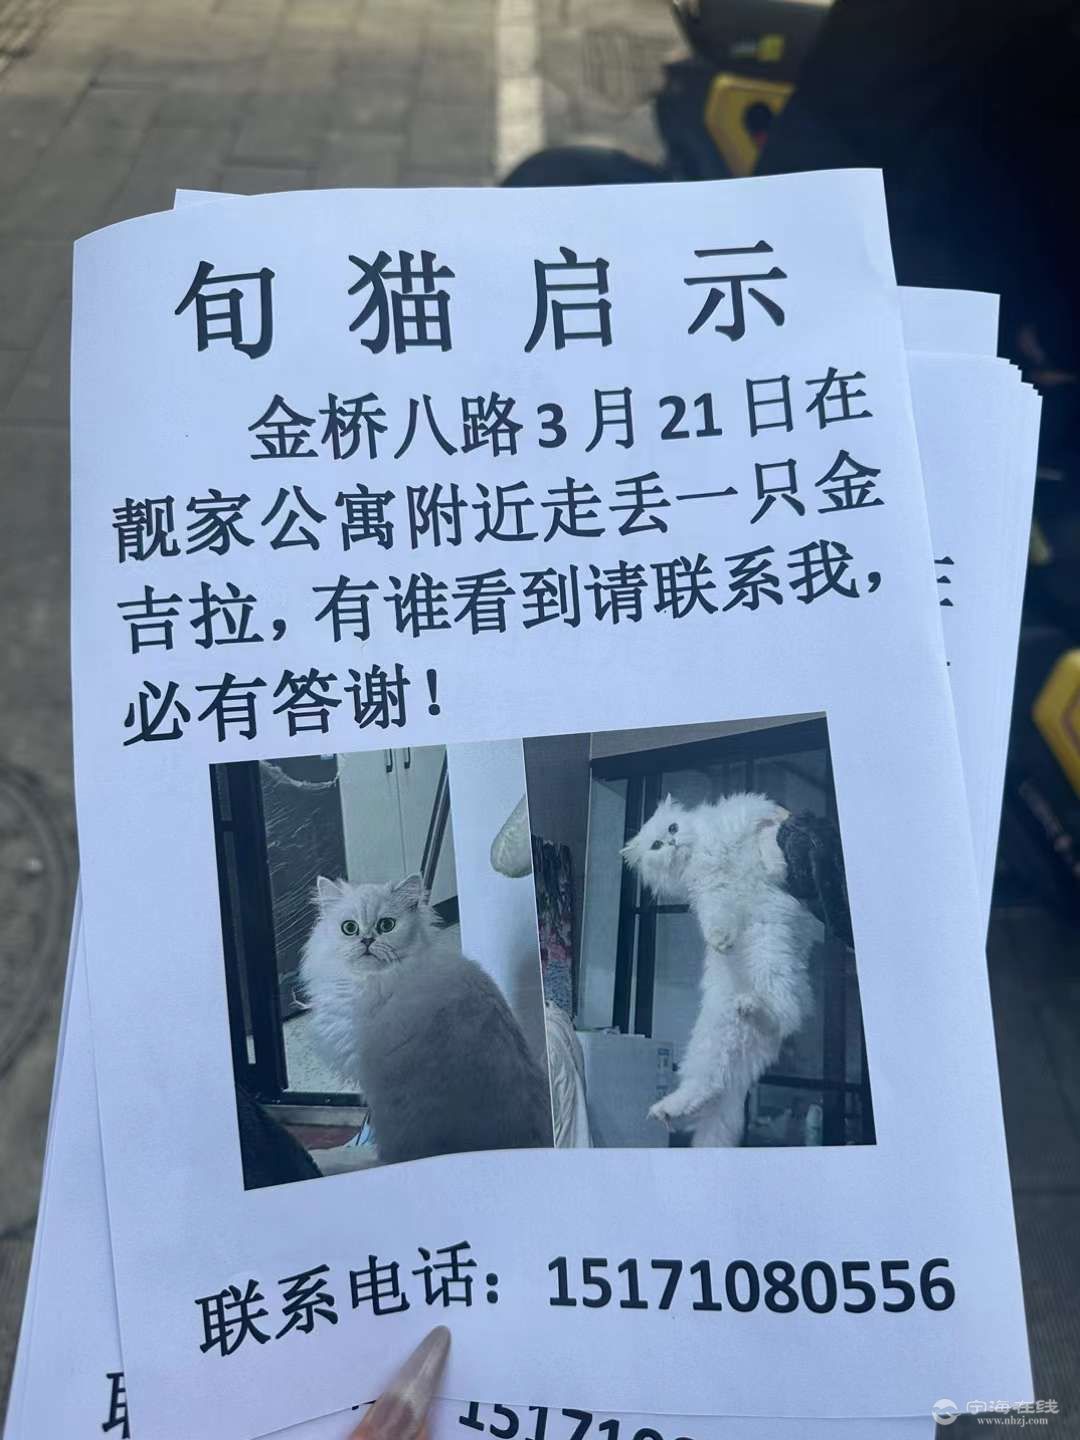 旬猫启示
金桥八路3月21日在
靓家公寓附近走丢一只金
吉拉，有谁看到请联系我，
必有答谢！
联系电话：15171080556
宁海在线
www.nhzj.com